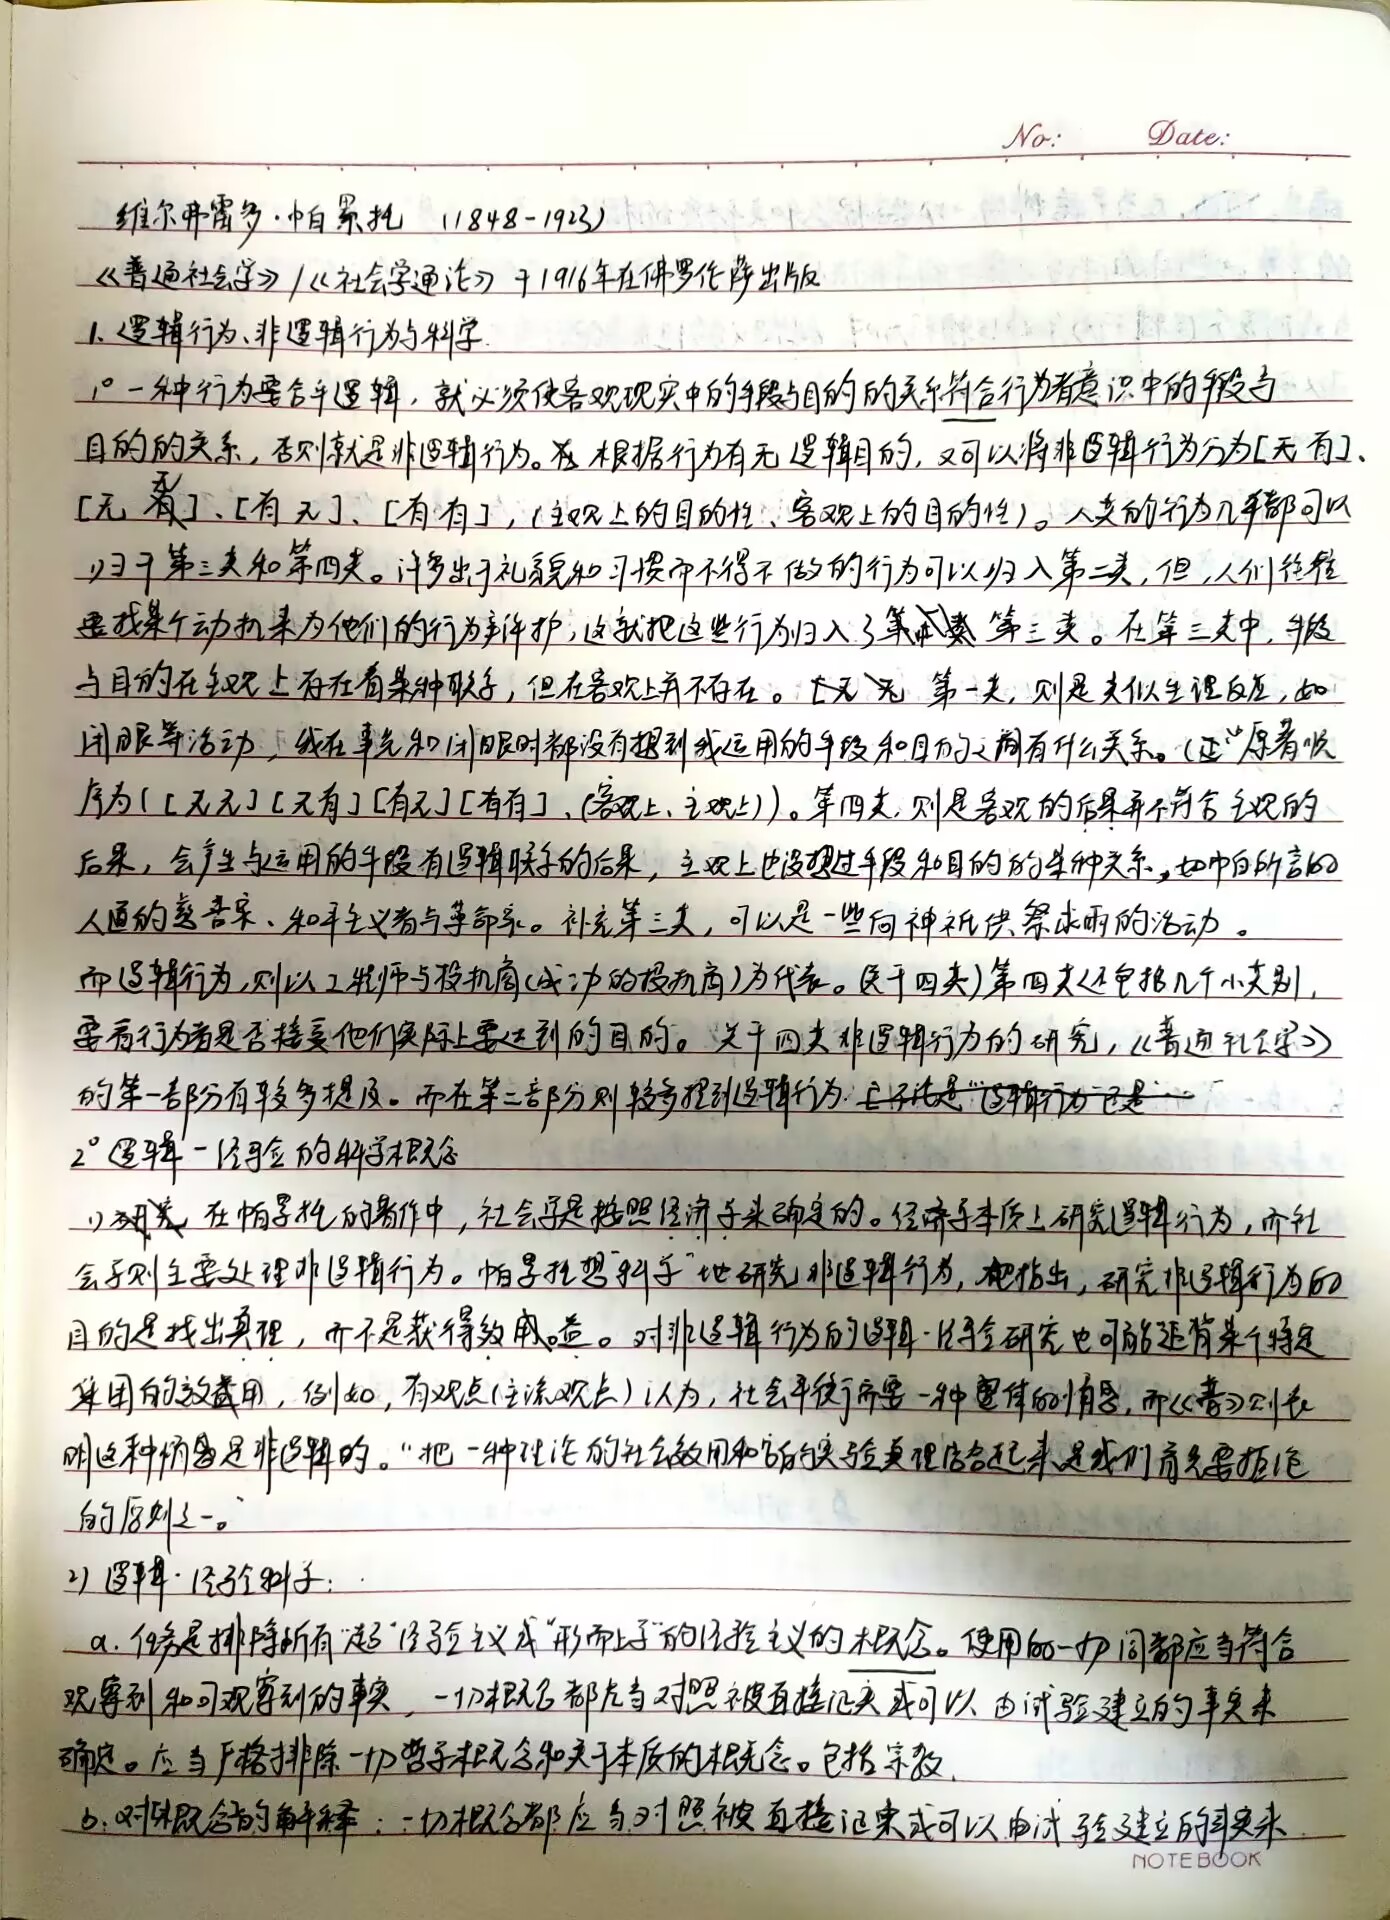 No: Date:
维尔弗雷多·帕累托 (1848-1923)
《普通社会学》/《社会学通论》于1916年在佛罗伦萨出版
1. 逻辑行为、非逻辑行为与科学.
1° 一种行为要合乎逻辑，就必须使客观现实中的手段与目的的关系符合行为者意识中的手段与
目的的关系，否则就是非逻辑行为。根据行为有无逻辑目的，又可以将非逻辑行为分为[无有]、
[无无]、[有无]、[有有]，(主观上的目的性、客观上的目的性)。人类的行为几乎都可以
归于第三类和第四类。许多出于礼貌和习惯而不得不做的行为可以归入第二类，但，人们往往
要找某个动机来为他们的行为辩护，这就把这些行为归入了第三类。在第三类中，手段
与目的在主观上存在着某种联系，但在客观上并不存在。第一类，则是类似生理反应，如
闭眼等活动，我在事先和闭眼时都没有想到我运用的手段和目的之间有什么关系。(注：原著顺
序为([无无][无有][有无][有有]、(客观上、主观上))。第四类，则是客观的后果并不符合主观的
后果，会产生与运用的手段有逻辑联系的后果，主观上也设想过手段和目的的某种关系，如帕所言的
人道的慈善家、和平主义者与革命家。补充第三类，可以是一些向神祇供祭求雨的活动。
而逻辑行为，则以工程师与投机商(成功的投机商)为代表。(关于四类)第四类还包括几个小类别，
要看行为者是否接受他们实际上要达到的目的。关于四类非逻辑行为的研究，《普通社会学》
的第一部分有较多提及。而在第二部分则较多提到逻辑行为.
2° 逻辑-经验的科学概念
1) 在帕累托的著作中，社会学是按照经济学来确定的。经济学本质上研究逻辑行为，而社
会学则主要处理非逻辑行为。帕累托想"科学"地研究非逻辑行为，他指出，研究非逻辑行为的
目的是找出真理，而不是获得效用。益。对非逻辑行为的逻辑·经验研究也可能违背某个特定
集团的效用，例如，有观点(主流观点)认为，社会平衡需要一种整体的情感，而《普》则表
明这种情感是非逻辑的。"把一种理论的社会效用和它的实验真理结合起来是我们首先要拒绝
的原则之一。"
2) 逻辑·经验科学:
a. 任务是排除所有"超"经验主义或"形而上学"的经验主义的概念。使用的一切词都应当符合
观察到和可观察到的事实，一切概念都应当对照被直接证实或可以由试验建立的事实来
确定。应当严格排除一切哲学概念和关于本质的概念。包括宗教.
b. 对概念的解释：一切概念都应当对照被直接证实或可以由试验建立的事实来
NOTEBOOK